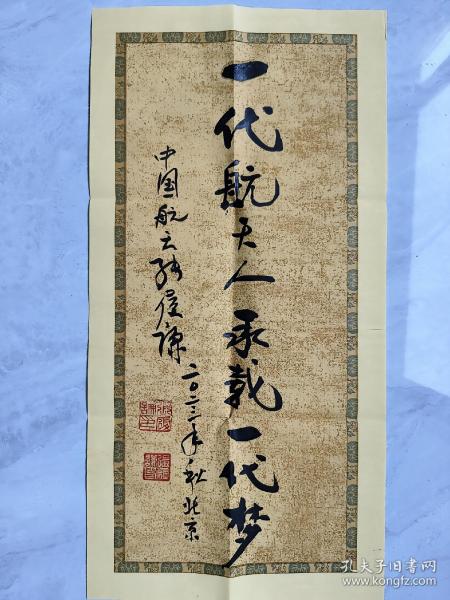 一代航天人承载一代梦
中国航天张履谦
二〇二三年秋北京
孔夫子旧书网
www.kongfz.com